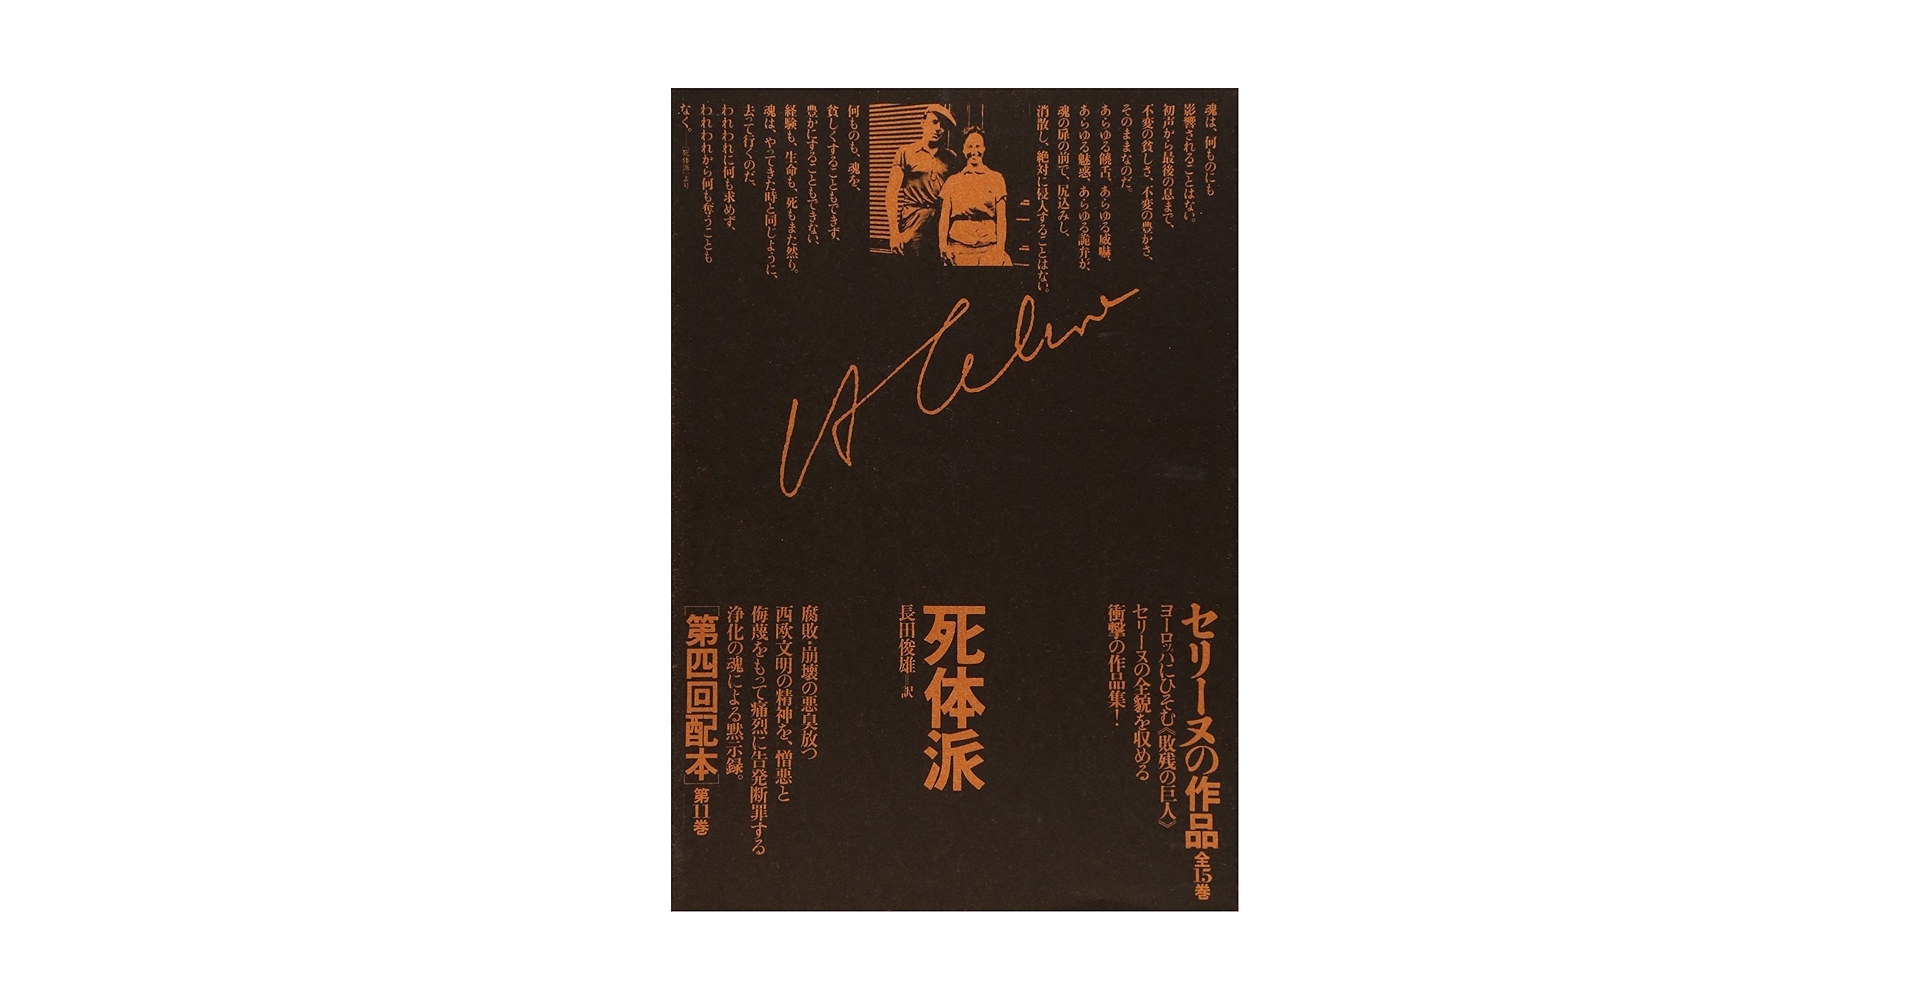 魂は、何ものにも
影響されることはない。
初声から最後の息まで、
不変の貧しさ、不変の豊かさ、
そのままなのだ。
あらゆる饒舌、あらゆる威嚇、
あらゆる魅惑、あらゆる詭弁が、
魂の扉の前で、尻込みし、
消散し、絶対に侵入することはない。
何ものも、魂を、
貧しくすることもできず、
豊かにすることもできない、
経験も、生命も、死もまた然り。
魂は、やってきた時と同じように、
去って行くのだ、
われわれに何も求めず、
われわれから何も奪うことも
なく。——『死体派』より
Céline
セリーヌの作品 全15巻
ヨーロッパにひそむ《敗残の巨人》
セリーヌの全貌を収める
衝撃の作品集！
死体派
長田俊雄＝訳
腐敗・崩壊の悪臭放つ
西欧文明の精神を、憎悪と
侮蔑をもって痛烈に告発断罪する
浄化の魂による黙示録。
［第四回配本］第11巻